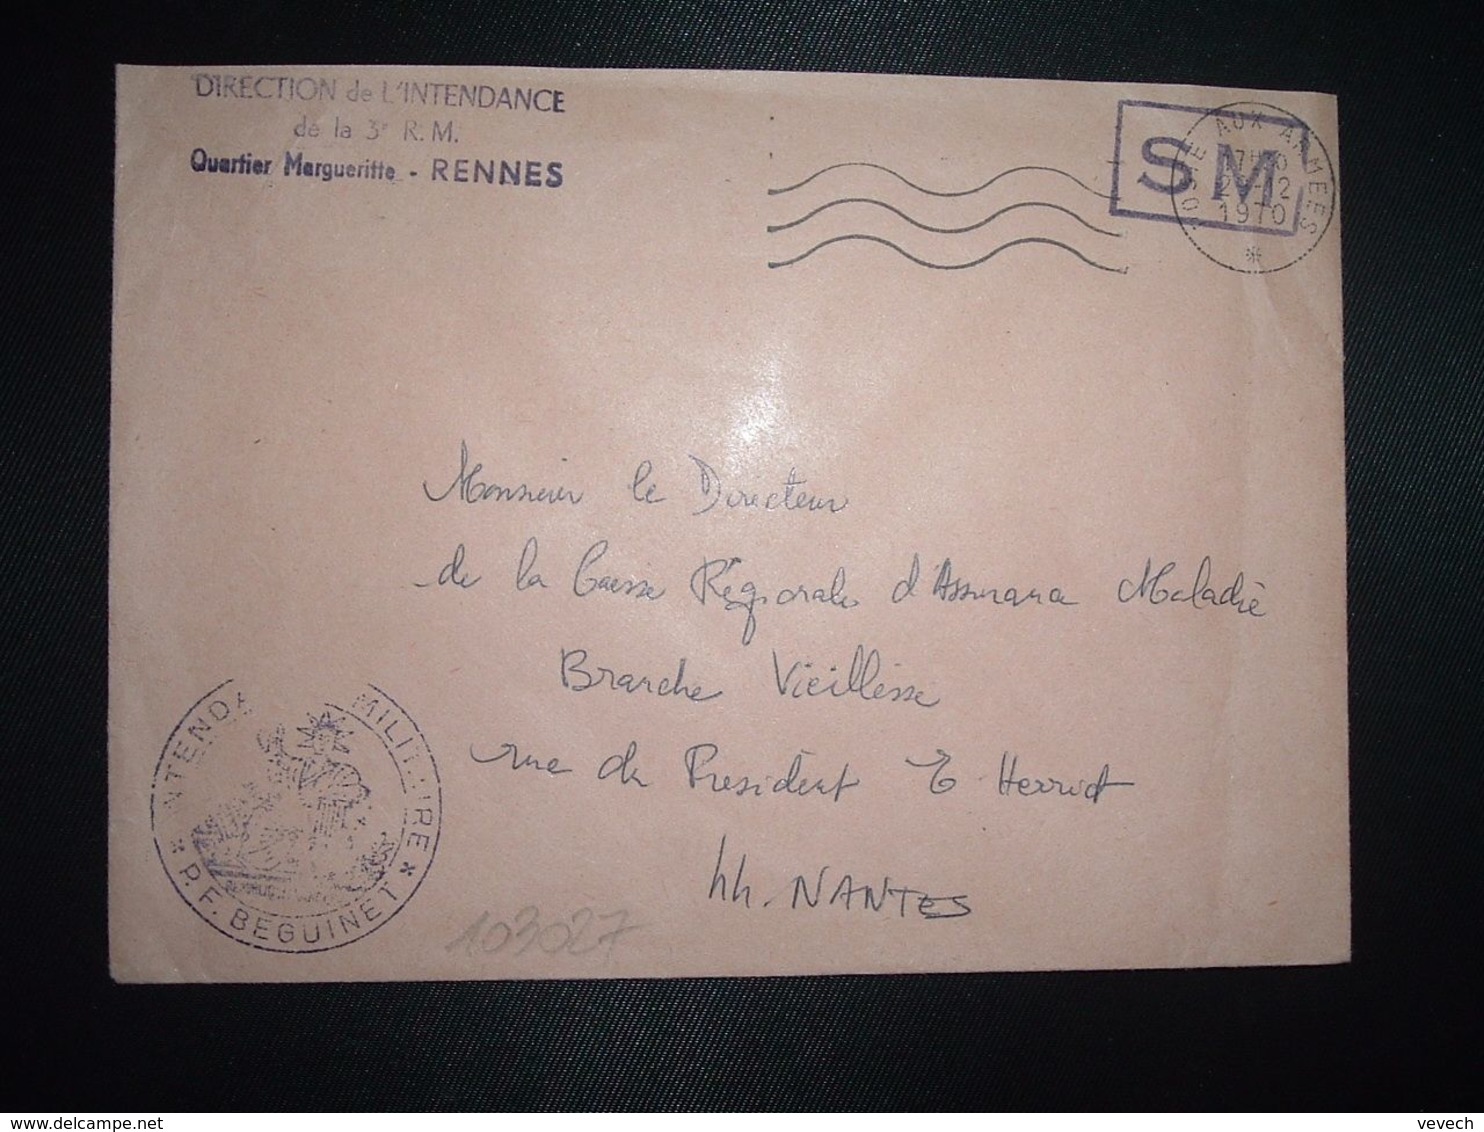 DIRECTION de L'INTENDANCE
de la 3e R.M.
Quartier Margueritte - RENNES
SM
POSTE AUX ARMEES
1970
Monsieur le Directeur
de la Caisse Régionale d'Assurance Maladie
Branche Vieillesse
rue du President E Herriot
44. NANTES
INTENDA MILITAIRE
P. F. BEGUINET
103027
delcampe.net
vevech